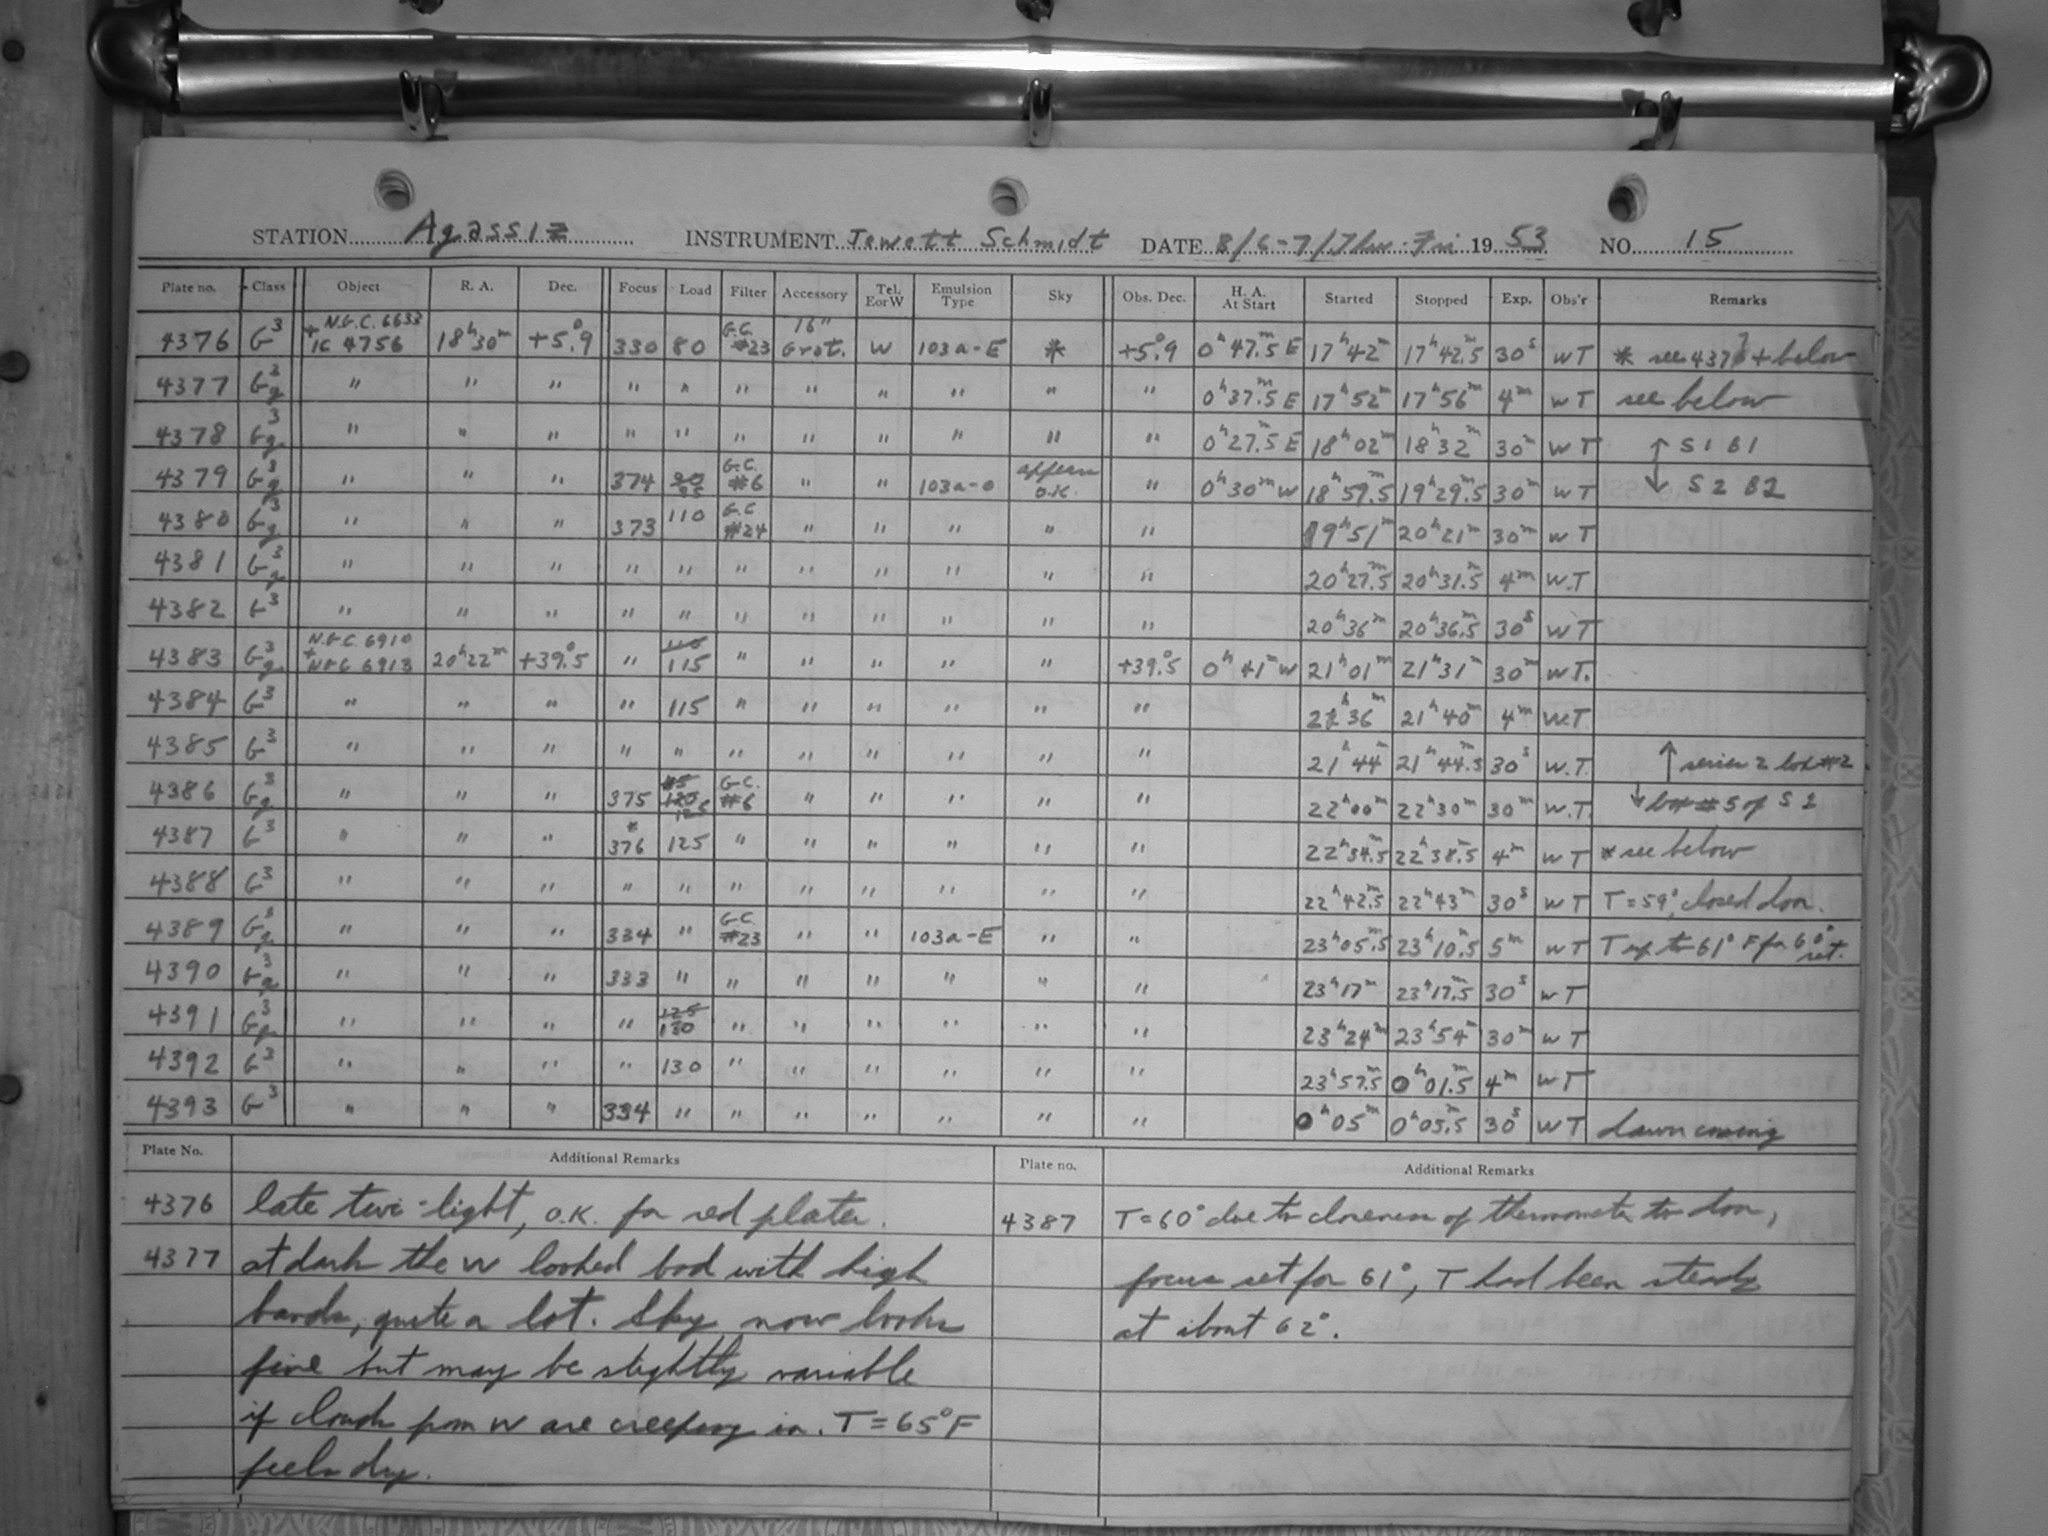 STATION Agassiz INSTRUMENT Jewett Schmidt DATE 8/6-7/Thu-Fri 19 53 NO. 15
Plate no. Class Object R. A. Dec. Focus Load Filter Accessory Tel. E or W Emulsion Type Sky Obs. Dec. H. A. At Start Started Stopped Exp. Obs'r Remarks
4376 G³ N.G.C. 6633 + IC 4756 18ʰ30ᵐ +5°.9 330 80 G.C. #23 16" Grat. W 103a-E * +5°.9 0ʰ47ᵐ.5 E 17ʰ42ᵐ 17ʰ42ᵐ.5 30ˢ WT * see 4377 + below
4377 G³g " " " " " " " " " " " 0ʰ37ᵐ.5 E 17ʰ52ᵐ 17ʰ56ᵐ 4ᵐ WT see below
4378 G³g " " " " " " " " " " " 0ʰ27ᵐ.5 E 18ʰ02ᵐ 18ʰ32ᵐ 30ᵐ WT ↑ S1 B1
4379 G³g " " " 374 90 95 G.C. #6 " " 103a-O appears O.K. " 0ʰ30ᵐ W 18ʰ59ᵐ.5 19ʰ29ᵐ.5 30ᵐ WT ↓ S2 B2
4380 G³g " " " 373 110 G.C. #24 " " " " " 19ʰ51ᵐ 20ʰ21ᵐ 30ᵐ WT
4381 G³g " " " " " " " " " " " 20ʰ27ᵐ.5 20ʰ31ᵐ.5 4ᵐ W.T
4382 G³ " " " " " " " " " " " 20ʰ36ᵐ 20ʰ36ᵐ.5 30ˢ WT
4383 G³g N.G.C. 6910 + N.G.C. 6913 20ʰ22ᵐ +39°.5 " 110 115 " " " " " +39°.5 0ʰ41ᵐ W 21ʰ01ᵐ 21ʰ31ᵐ 30ᵐ WT.
4384 G³ " " " " 115 " " " " " " 21ʰ36ᵐ 21ʰ40ᵐ 4ᵐ W.T
4385 G³ " " " " " " " " " " " 21ʰ44ᵐ 21ʰ44ᵐ.5 30ˢ W.T. ↑ series 2 box #2
4386 G³g " " " 375 115 120 125 G.C. #6 " " " " " 22ʰ00ᵐ 22ʰ30ᵐ 30ᵐ W.T. ↓ box #5 of S 2
4387 G³ " " " * 376 125 " " " " " " 22ʰ34ᵐ.5 22ʰ38ᵐ.5 4ᵐ WT * see below
4388 G³ " " " " " " " " " " " 22ʰ42ᵐ.5 22ʰ43ᵐ 30ˢ WT T=59°, closed door.
4389 G³g " " " 334 " G.C. #23 " " 103a-E " " 23ʰ05ᵐ.5 23ʰ10ᵐ.5 5ᵐ WT T up to 61°F for 60° set.
4390 G³g " " " 333 " " " " " " " 23ʰ17ᵐ 23ʰ17ᵐ.5 30ˢ WT
4391 G³g " " " " 125 130 " " " " " " 23ʰ24ᵐ 23ʰ54ᵐ 30ᵐ WT
4392 G³ " " " " 130 " " " " " " 23ʰ57ᵐ.5 0ʰ01ᵐ.5 4ᵐ WT
4393 G³ " " " 334 " " " " " " " 0ʰ05ᵐ 0ʰ05ᵐ.5 30ˢ WT dawn coming
Plate No. Additional Remarks Plate no. Additional Remarks
4376 late twi-light, O.K. for red plates.
4377 at dark the W looked bad with high
bands, quite a lot. Sky now looks
fine but may be slightly variable
if clouds from W are creeping in. T=65°F
feels dry.
4387 T=60° due to closeness of thermometer to door,
focus set for 61°, T had been steady
at about 62°.